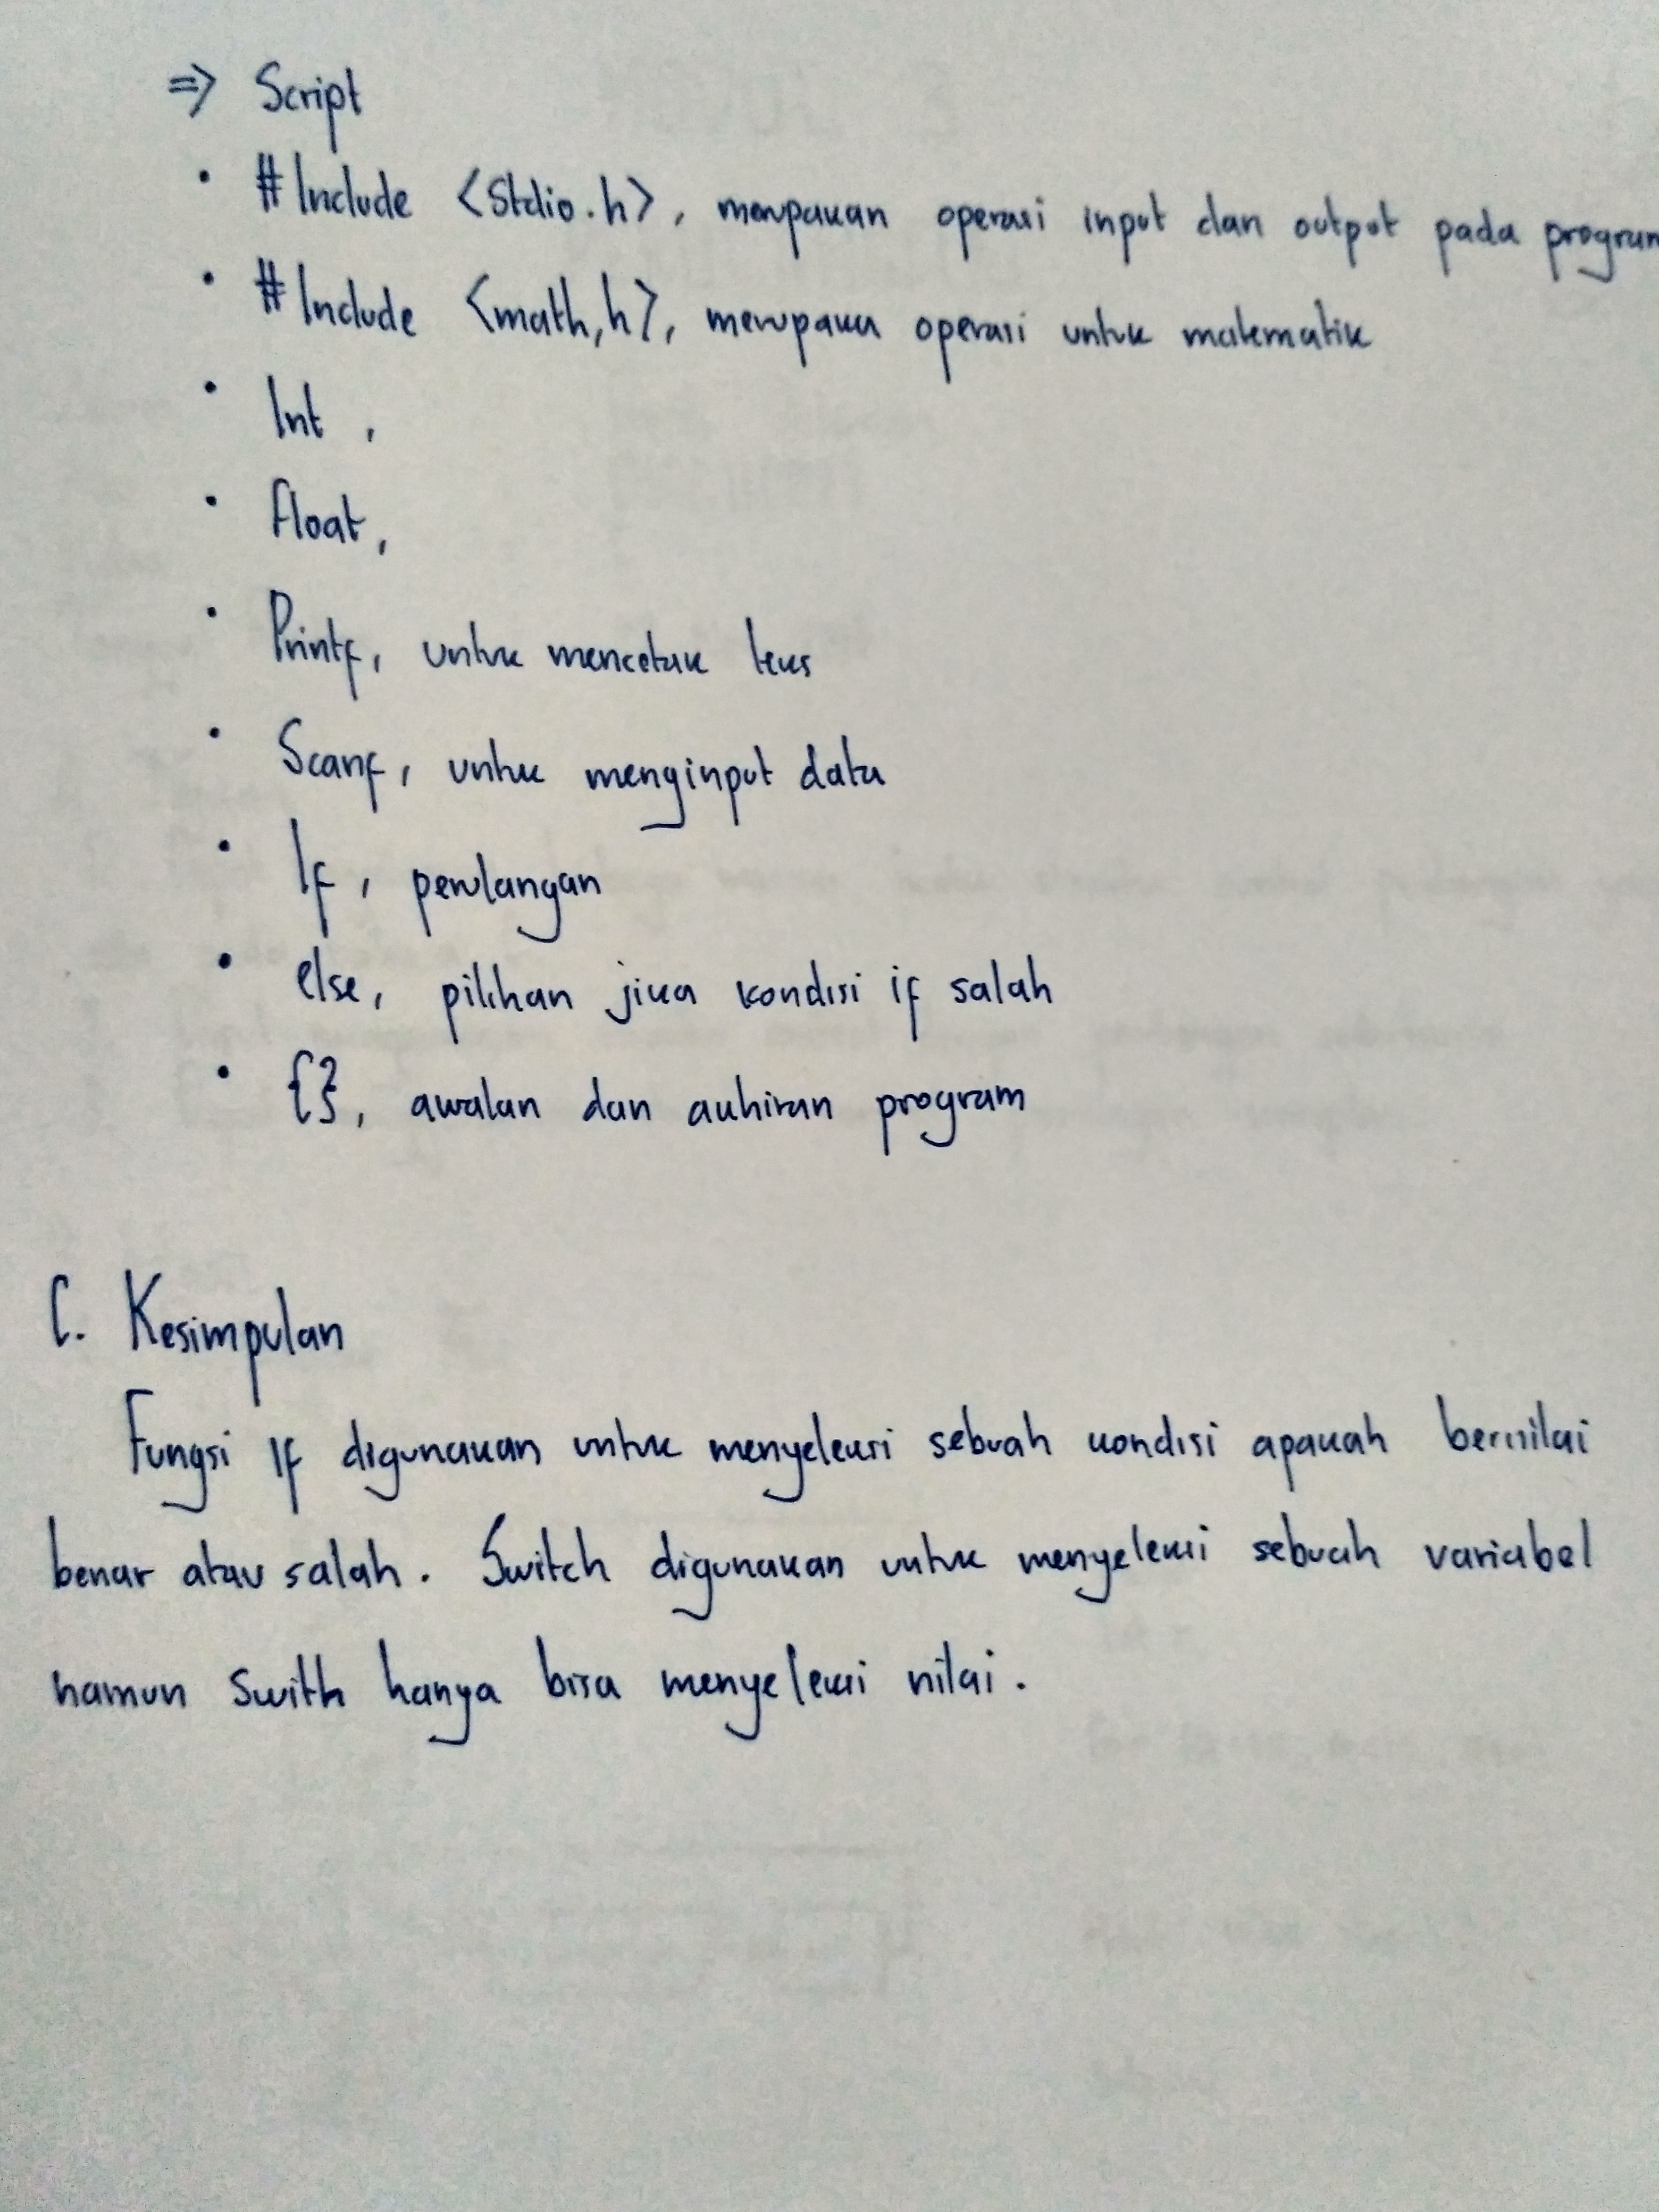 => Script
• #Include <Stdio.h>, merupakan operasi input dan output pada program
• #Include <math,h>, merupaka operasi untuk matematik
• Int ,
• float,
• Printf, untuk mencetak teks
• Scanf, untuk menginput data
• If, perulangan
• else, pilihan jika kondisi if salah
• {}, awalan dan akhiran program
C. Kesimpulan
Fungsi if digunakan untuk menyeleksi sebuah kondisi apakah bernilai
benar atau salah. Switch digunakan untuk menyeleksi sebuah variabel
namun swith hanya bisa menyeleksi nilai.